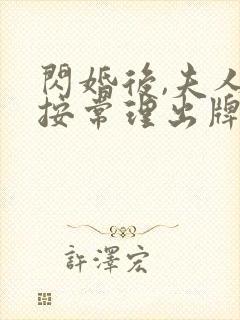 閃婚後,夫人
按常理出牌
許澤宏